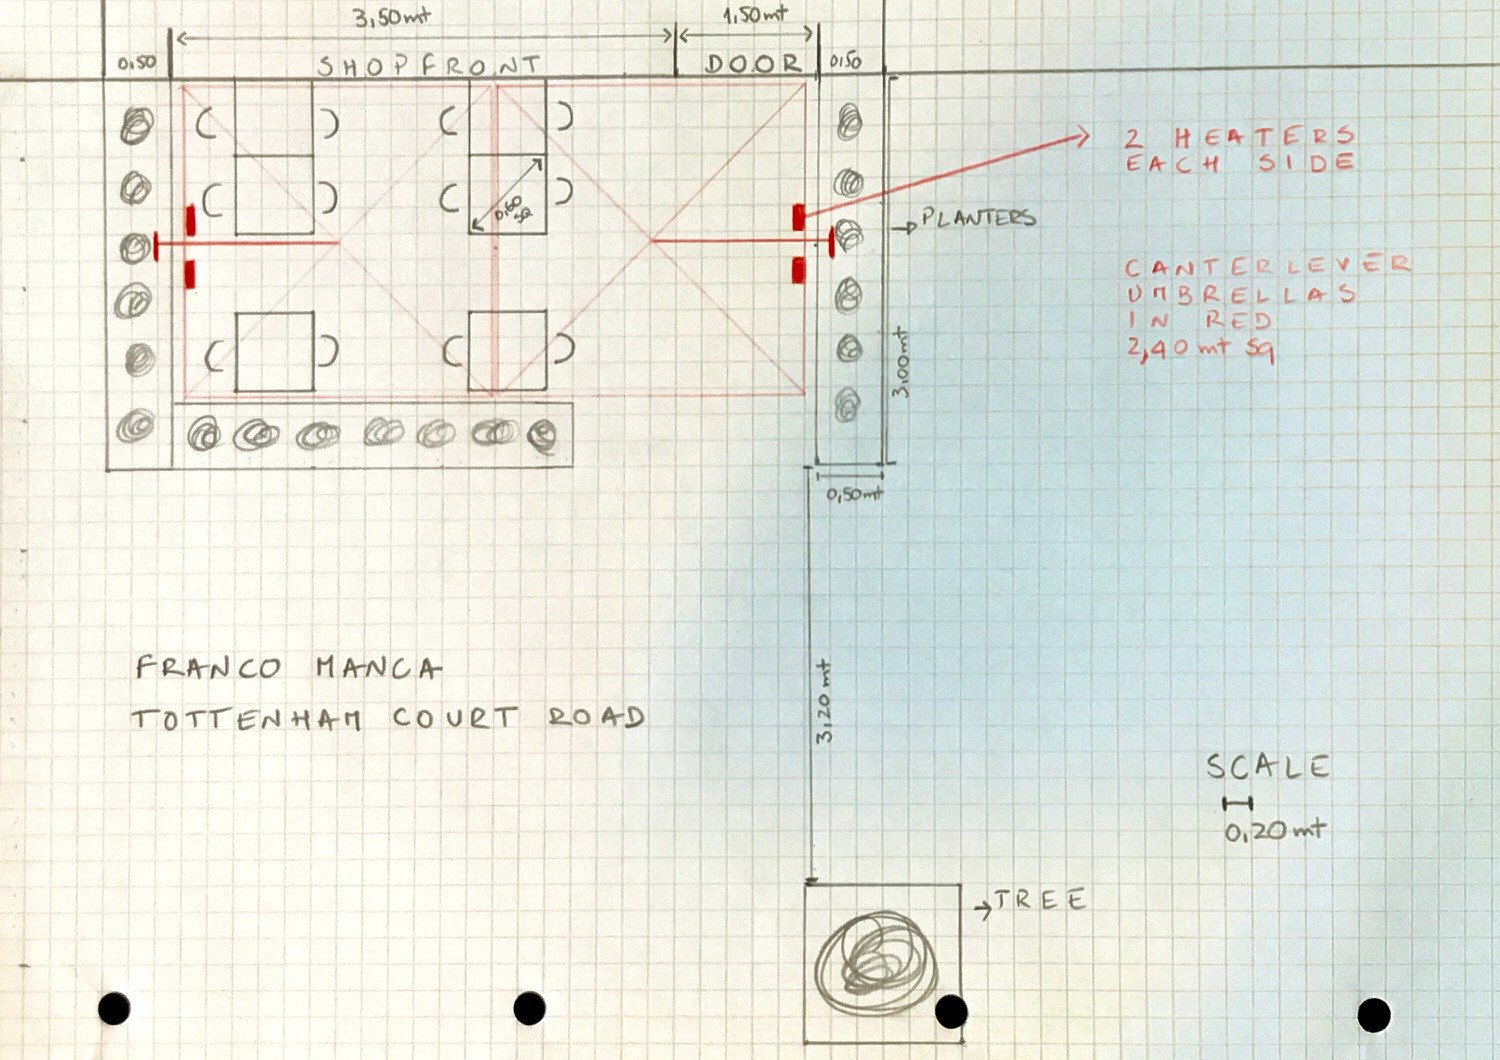 3,50mt
1,50mt
0,50
SHOPFRONT
DOOR
0,50
2 HEATERS
EACH SIDE
0,60
SQ
PLANTERS
CANTERLEVER
UMBRELLAS
IN RED
2,40 mt sq
3,00mt
0,50mt
FRANCO MANCA
TOTTENHAM COURT ROAD
3,20 mt
SCALE
0,20mt
TREE